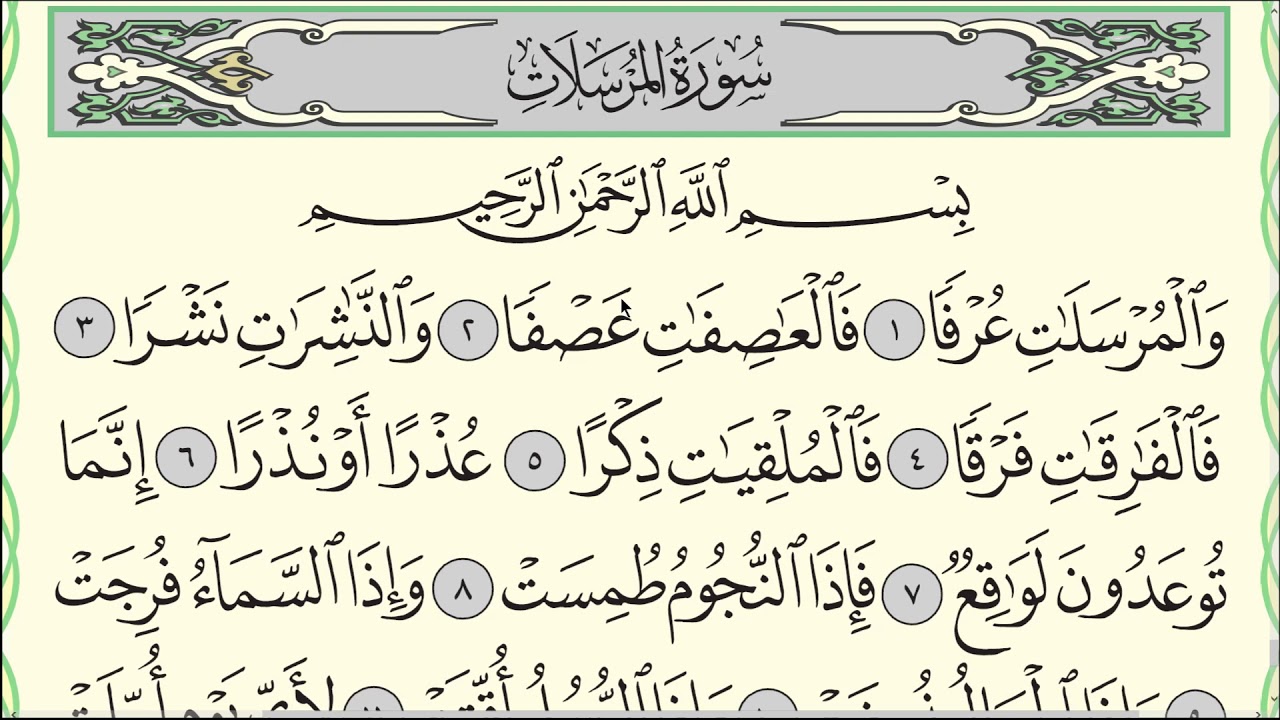 سُورَةُ المُرْسَلَاتِ
بِسْمِ ٱللَّهِ ٱلرَّحْمَٰنِ ٱلرَّحِيمِ
وَٱلْمُرْسَلَٰتِ عُرْفًا ١ فَٱلْعَٰصِفَٰتِ عَصْفًا ٢ وَٱلنَّٰشِرَٰتِ نَشْرًا ٣
فَٱلْفَٰرِقَٰتِ فَرْقًا ٤ فَٱلْمُلْقِيَٰتِ ذِكْرًا ٥ عُذْرًا أَوْ نُذْرًا ٦ إِنَّمَا
تُوعَدُونَ لَوَٰقِعٌ ٧ فَإِذَا ٱلنُّجُومُ طُمِسَتْ ٨ وَإِذَا ٱلسَّمَآءُ فُرِجَتْ